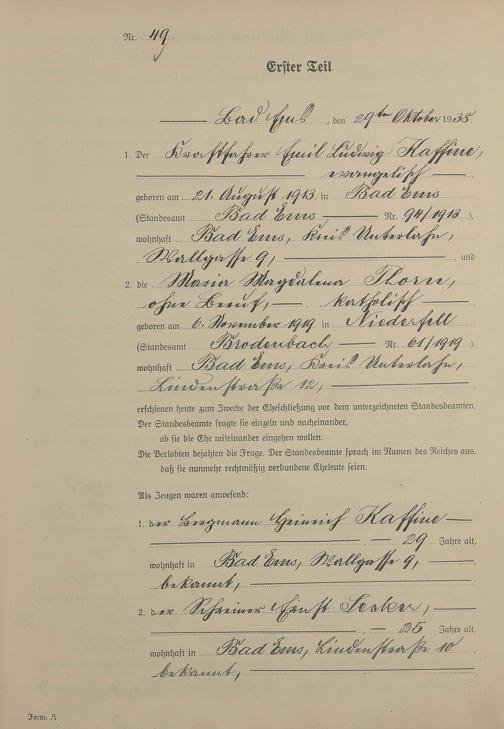 Nr. 49
Erster Teil
Bad Ems, den 29ten Oktober 1938
1. Der Kraftfahrer Emil Ludwig Kaffine,
evangelisch
geboren am 21. August 1913 in Bad Ems
(Standesamt Bad Ems Nr. 94/1913).
wohnhaft Bad Ems, Kreis Unterlahn,
Wallgasse 9, und
2. die Maria Magdalena Thorn,
ohne Beruf, katholisch
geboren am 6. November 1919 in Niederfell
(Standesamt Brodenbach Nr. 61/1919).
wohnhaft Bad Ems, Kreis Unterlahn,
Lindenstraße 12,
erschienen heute zum Zwecke der Eheschließung vor dem unterzeichneten Standesbeamten.
Der Standesbeamte fragte sie einzeln und nacheinander,
ob sie die Ehe miteinander eingehen wollen.
Die Verlobten bejahten die Frage. Der Standesbeamte sprach im Namen des Reiches aus,
daß sie nunmehr rechtmäßig verbundene Eheleute seien.
Als Zeugen waren anwesend:
1. der Bergmann Heinrich Kaffine
29 Jahre alt,
wohnhaft in Bad Ems, Wallgasse 9,
bekannt,
2. der Schreiner Ernst
25 Jahre alt,
wohnhaft in Bad Ems, Lindenstraße 10
bekannt,
Form. A